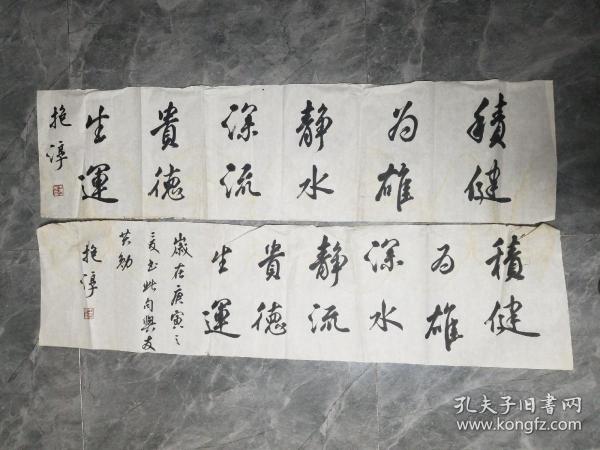 積健
为雄
静水
深流
貴德
生運
抱淳
積健
为雄
深水
静流
貴德
生運
歲在庚寅之
夏书此句與友
共勉
抱淳
孔夫子旧书网
www.kongfz.com